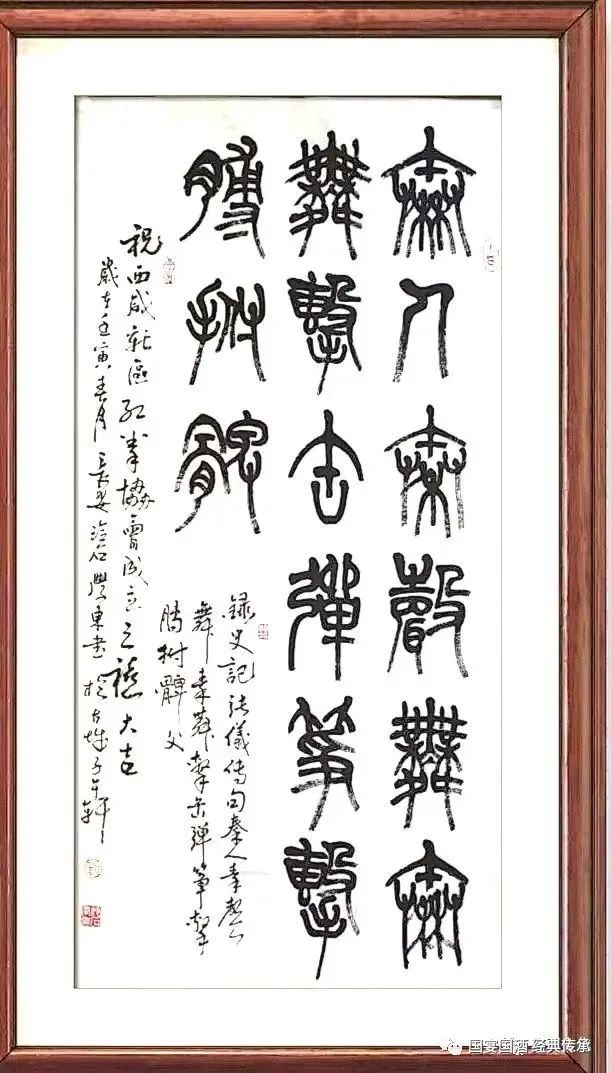 秦人秦聲舞秦
舞擊缶彈箏擊
膊拊髀
錄史記張儀傳句秦人秦聲
舞秦舞擊缶彈箏擊
膊拊髀文
祝西咸新區紅拳協會成立之禧大吉
歲在壬寅春月長安冷石學東書於古城子午軒
国宴国酒 经典传承